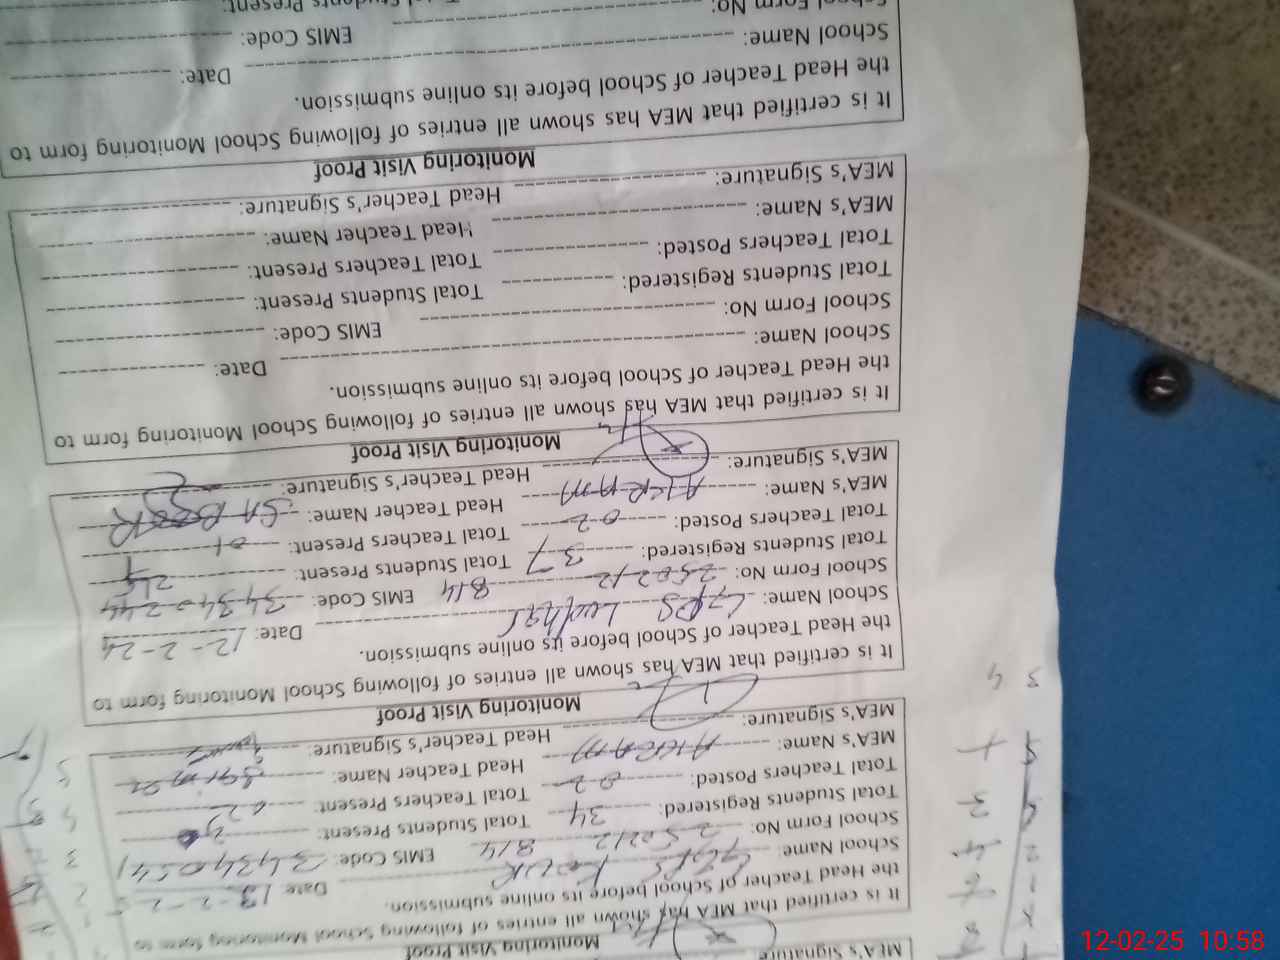 MEA's Signature:
Monitoring Visit Proof
It is certified that MEA has shown all entries of following School Monitoring form to
the Head Teacher of School before its online submission.
School Name: GGPS Date:
School Form No: 250212 814 EMIS Code: 34340541
Total Students Registered: 34 Total Students Present:
Total Teachers Posted: 02 Total Teachers Present: 02
MEA's Name: AKRAM Head Teacher Name:
MEA's Signature: Head Teacher's Signature:
Monitoring Visit Proof
It is certified that MEA has shown all entries of following School Monitoring form to
the Head Teacher of School before its online submission.
School Name: GPS Date: 12-2-24
School Form No: 250212 814 EMIS Code: 34340244
Total Students Registered: 37 Total Students Present:
Total Teachers Posted: 02 Total Teachers Present: 01
MEA's Name: AKRAM Head Teacher Name: SABOOR
MEA's Signature: Head Teacher's Signature:
Monitoring Visit Proof
It is certified that MEA has shown all entries of following School Monitoring form to
the Head Teacher of School before its online submission.
School Name: Date:
School Form No: EMIS Code:
Total Students Registered: Total Students Present:
Total Teachers Posted: Total Teachers Present:
MEA's Name: Head Teacher Name:
MEA's Signature: Head Teacher's Signature:
Monitoring Visit Proof
It is certified that MEA has shown all entries of following School Monitoring form to
the Head Teacher of School before its online submission.
School Name: Date:
School Form No: EMIS Code:
Total Students Present:
12-02-25 10:58